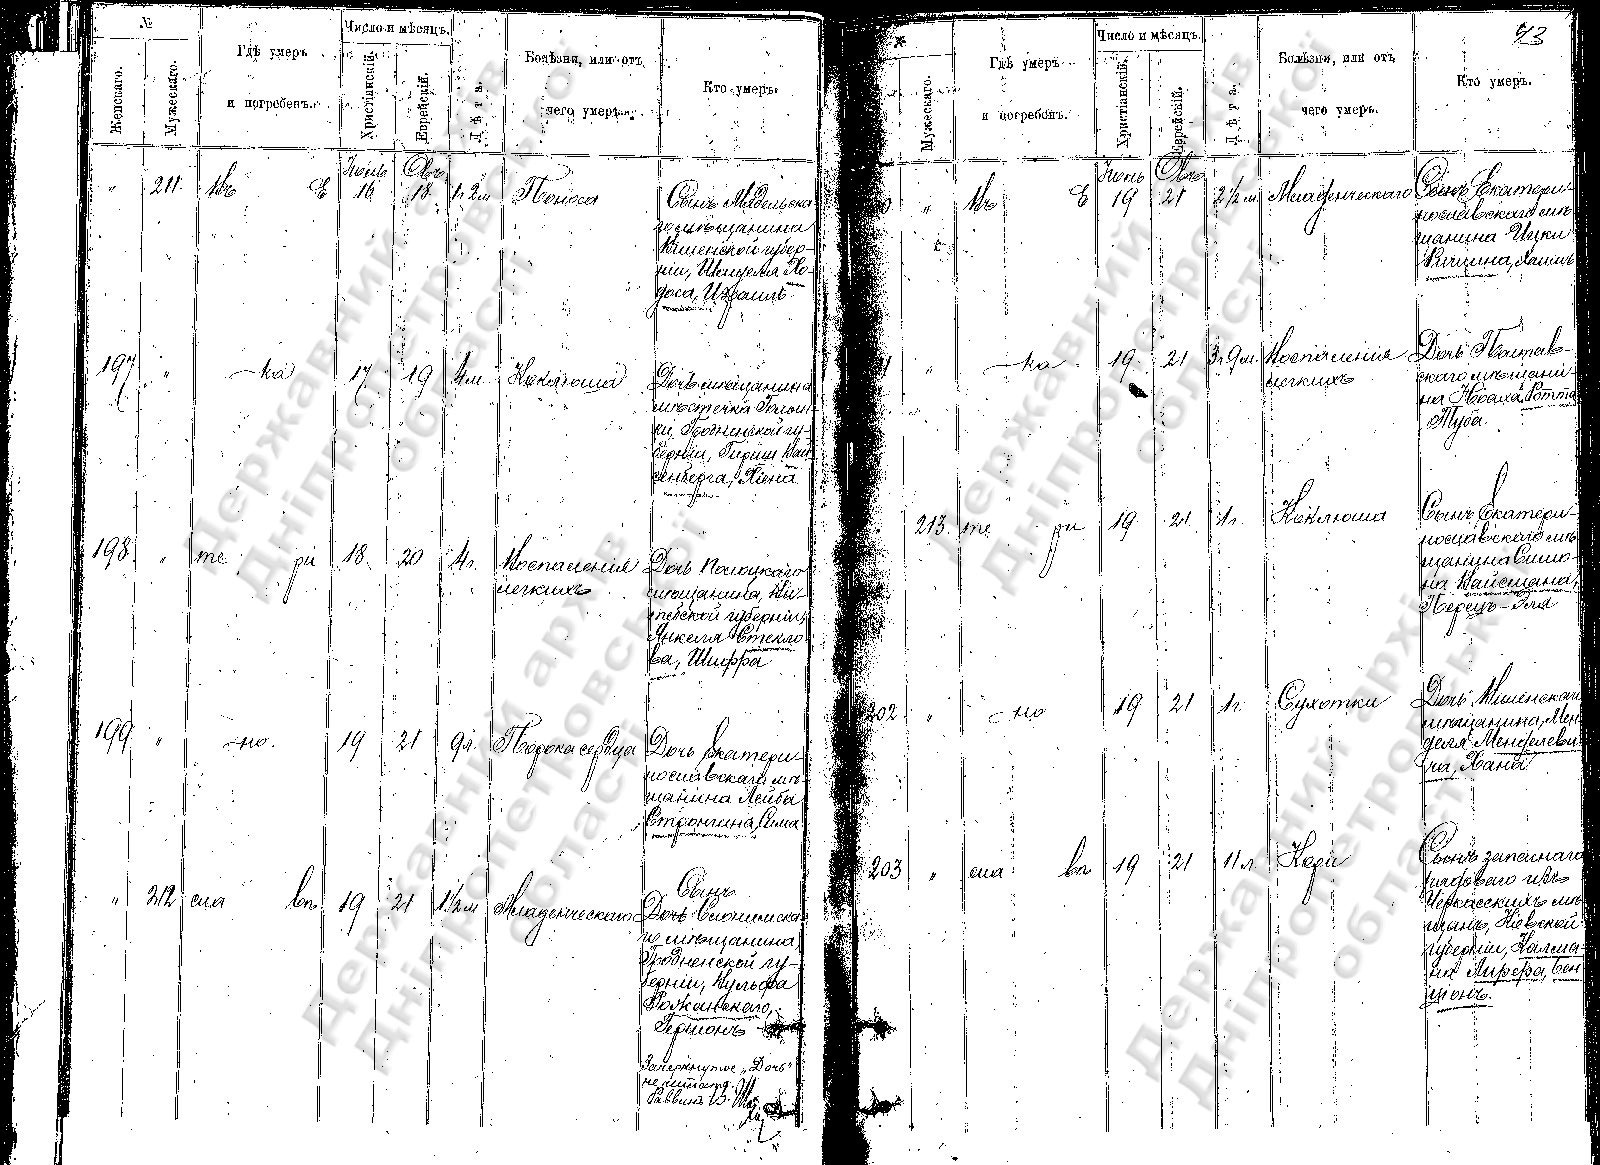 №
Женскаго.
Мужескаго.
Гдѣ умеръ
и погребенъ.
Число и мѣсяцъ.
Христіанскій.
Еврейскій.
Лѣта.
Болѣзни, или отъ
чего умеръ.
Кто умеръ.
" 211. Въ Е Іюнь 16 18 1г 2м Поноса
Сынъ
мѣщанина
губер-
ніи,
Израиль
197 " —ка 17 19 4м. Коклюша
Дочь мѣщанина
мѣстечка
Гродненской гу-
берніи, Гирша
198. " те ри 18. 20 4г. Воспаленія
легкихъ
Дочь Полоцкаго
мѣщанина, Ви-
тебской губерніи,
Янкеля Стекло-
ва, Шифра
199 " —но. 19 21 9л. Порока сердца
Дочь Екатери-
нославскаго мѣ-
щанина Лейба
Стронгина, Сима
" 212 сла въ 19 21 1½м Младенческаго
Сынъ
Дочь Слонимска-
го мѣщанина,
Гродненской гу-
берніи, Вульфа
Рожанскаго,
Гершонъ
Зачеркнутое „Дочь"
не читать.
Раввинъ
73
Мужескаго.
Гдѣ умеръ
и погребенъ.
Число и мѣсяцъ.
Христіанскій.
Еврейскій.
Лѣта.
Болѣзни, или отъ
чего умеръ.
Кто умеръ.
0 " Въ Е Іюнь 19 21 2½м. Младенческаго
Сынъ Екатери-
нославскаго мѣ-
щанина Ицки
Хаимъ
1 " —ка 19. 21 3г. 9м. Воспаленія
легкихъ
Дочь Полтав-
скаго мѣщани-
на Ноаха Ротта
Туба
213. те ри 19. 21. 1г. Коклюша
Сынъ Екатери-
нославскаго мѣ-
щанина Симо-
на Вайсмана,
Перецъ-Эля
202 " —но 19 21 1г. Сухотки
Дочь Минскаго
мѣщанина, Мен-
деля Менделеви-
ча, Хана
203 " сла въ 19 21 11л. Кори
Сынъ запаснаго
рядоваго изъ
Черкасскихъ мѣ-
щанъ, Кіевской
губерніи, Калма-
на Лирера, Бен-
ціонъ.
Державний архів
Дніпропетровської
області